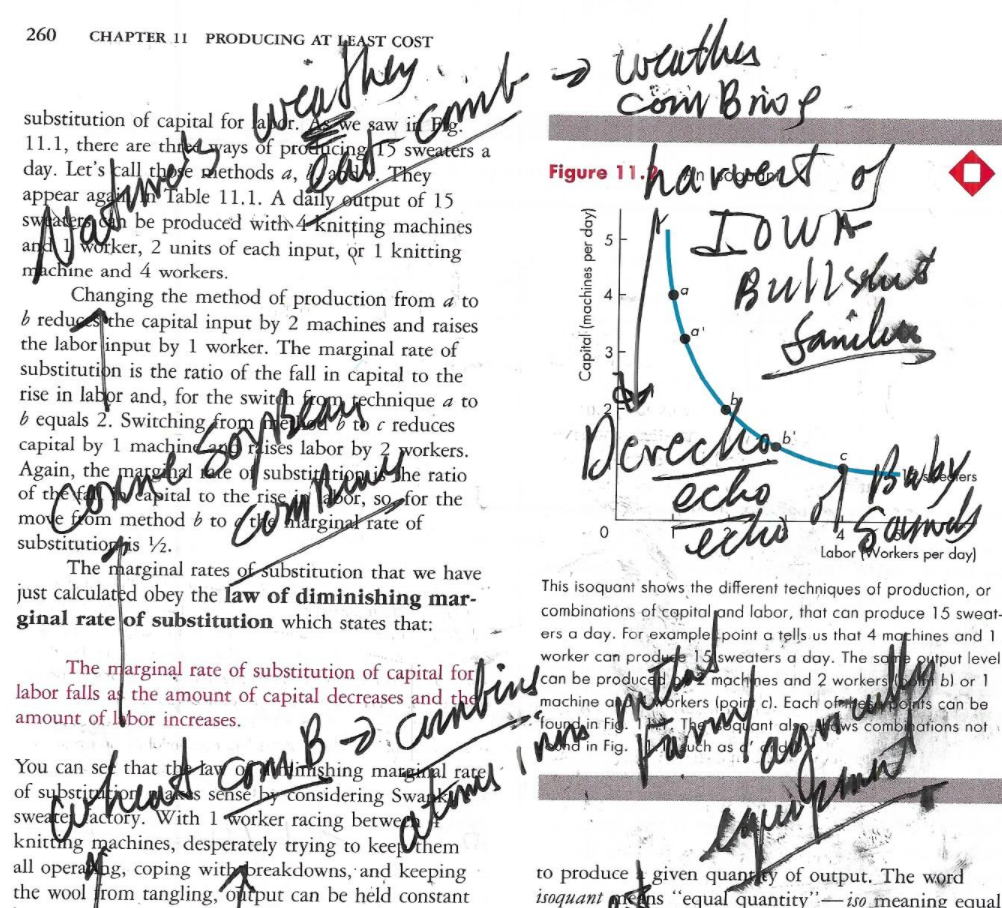 260 CHAPTER 11 PRODUCING AT LEAST COST
substitution of capital for labor. As we saw in Fig.
11.1, there are three ways of producing 15 sweaters a
day. Let's call these methods a, b, and c. They
appear again in Table 11.1. A daily output of 15
sweaters can be produced with 4 knitting machines
and 1 worker, 2 units of each input, or 1 knitting
machine and 4 workers.
Changing the method of production from a to
b reduces the capital input by 2 machines and raises
the labor input by 1 worker. The marginal rate of
substitution is the ratio of the fall in capital to the
rise in labor and, for the switch from technique a to
b equals 2. Switching from method b to c reduces
capital by 1 machine and raises labor by 2 workers.
Again, the marginal rate of substitution is the ratio
of the fall in capital to the rise in labor, so, for the
move from method b to c the marginal rate of
substitution is ½.
The marginal rates of substitution that we have
just calculated obey the law of diminishing mar-
ginal rate of substitution which states that:
The marginal rate of substitution of capital for
labor falls as the amount of capital decreases and the
amount of labor increases.
You can see that the law of diminishing marginal rate
of substitution makes sense by considering Swanky
sweater factory. With 1 worker racing between 4
knitting machines, desperately trying to keep them
all operating, coping with breakdowns, and keeping
the wool from tangling, output can be held constant
weather
east comb → weather
Soybean
wheat comB → combine
atoms
Figure 11.2 An Isoquant
harvest of
IOWA
Derecho
echo
echo
of Baby
Sounds
Capital (machines per day)
5
4
3
2
a
a'
b
b'
c
sweaters
0
1
4
Labor (Workers per day)
This isoquant shows the different techniques of production, or
combinations of capital and labor, that can produce 15 sweat-
ers a day. For example point a tells us that 4 machines and 1
worker can produce 15 sweaters a day. The same output level
can be produced by 2 machines and 2 workers (point b) or 1
machine and 4 workers (point c). Each of these points can be
found in Fig. 11.1. The isoquant also shows combinations not
found in Fig. 11.1 such as a' and b'.
metal
farm
equipment
to produce a given quantity of output. The word
isoquant means "equal quantity"—iso meaning equal